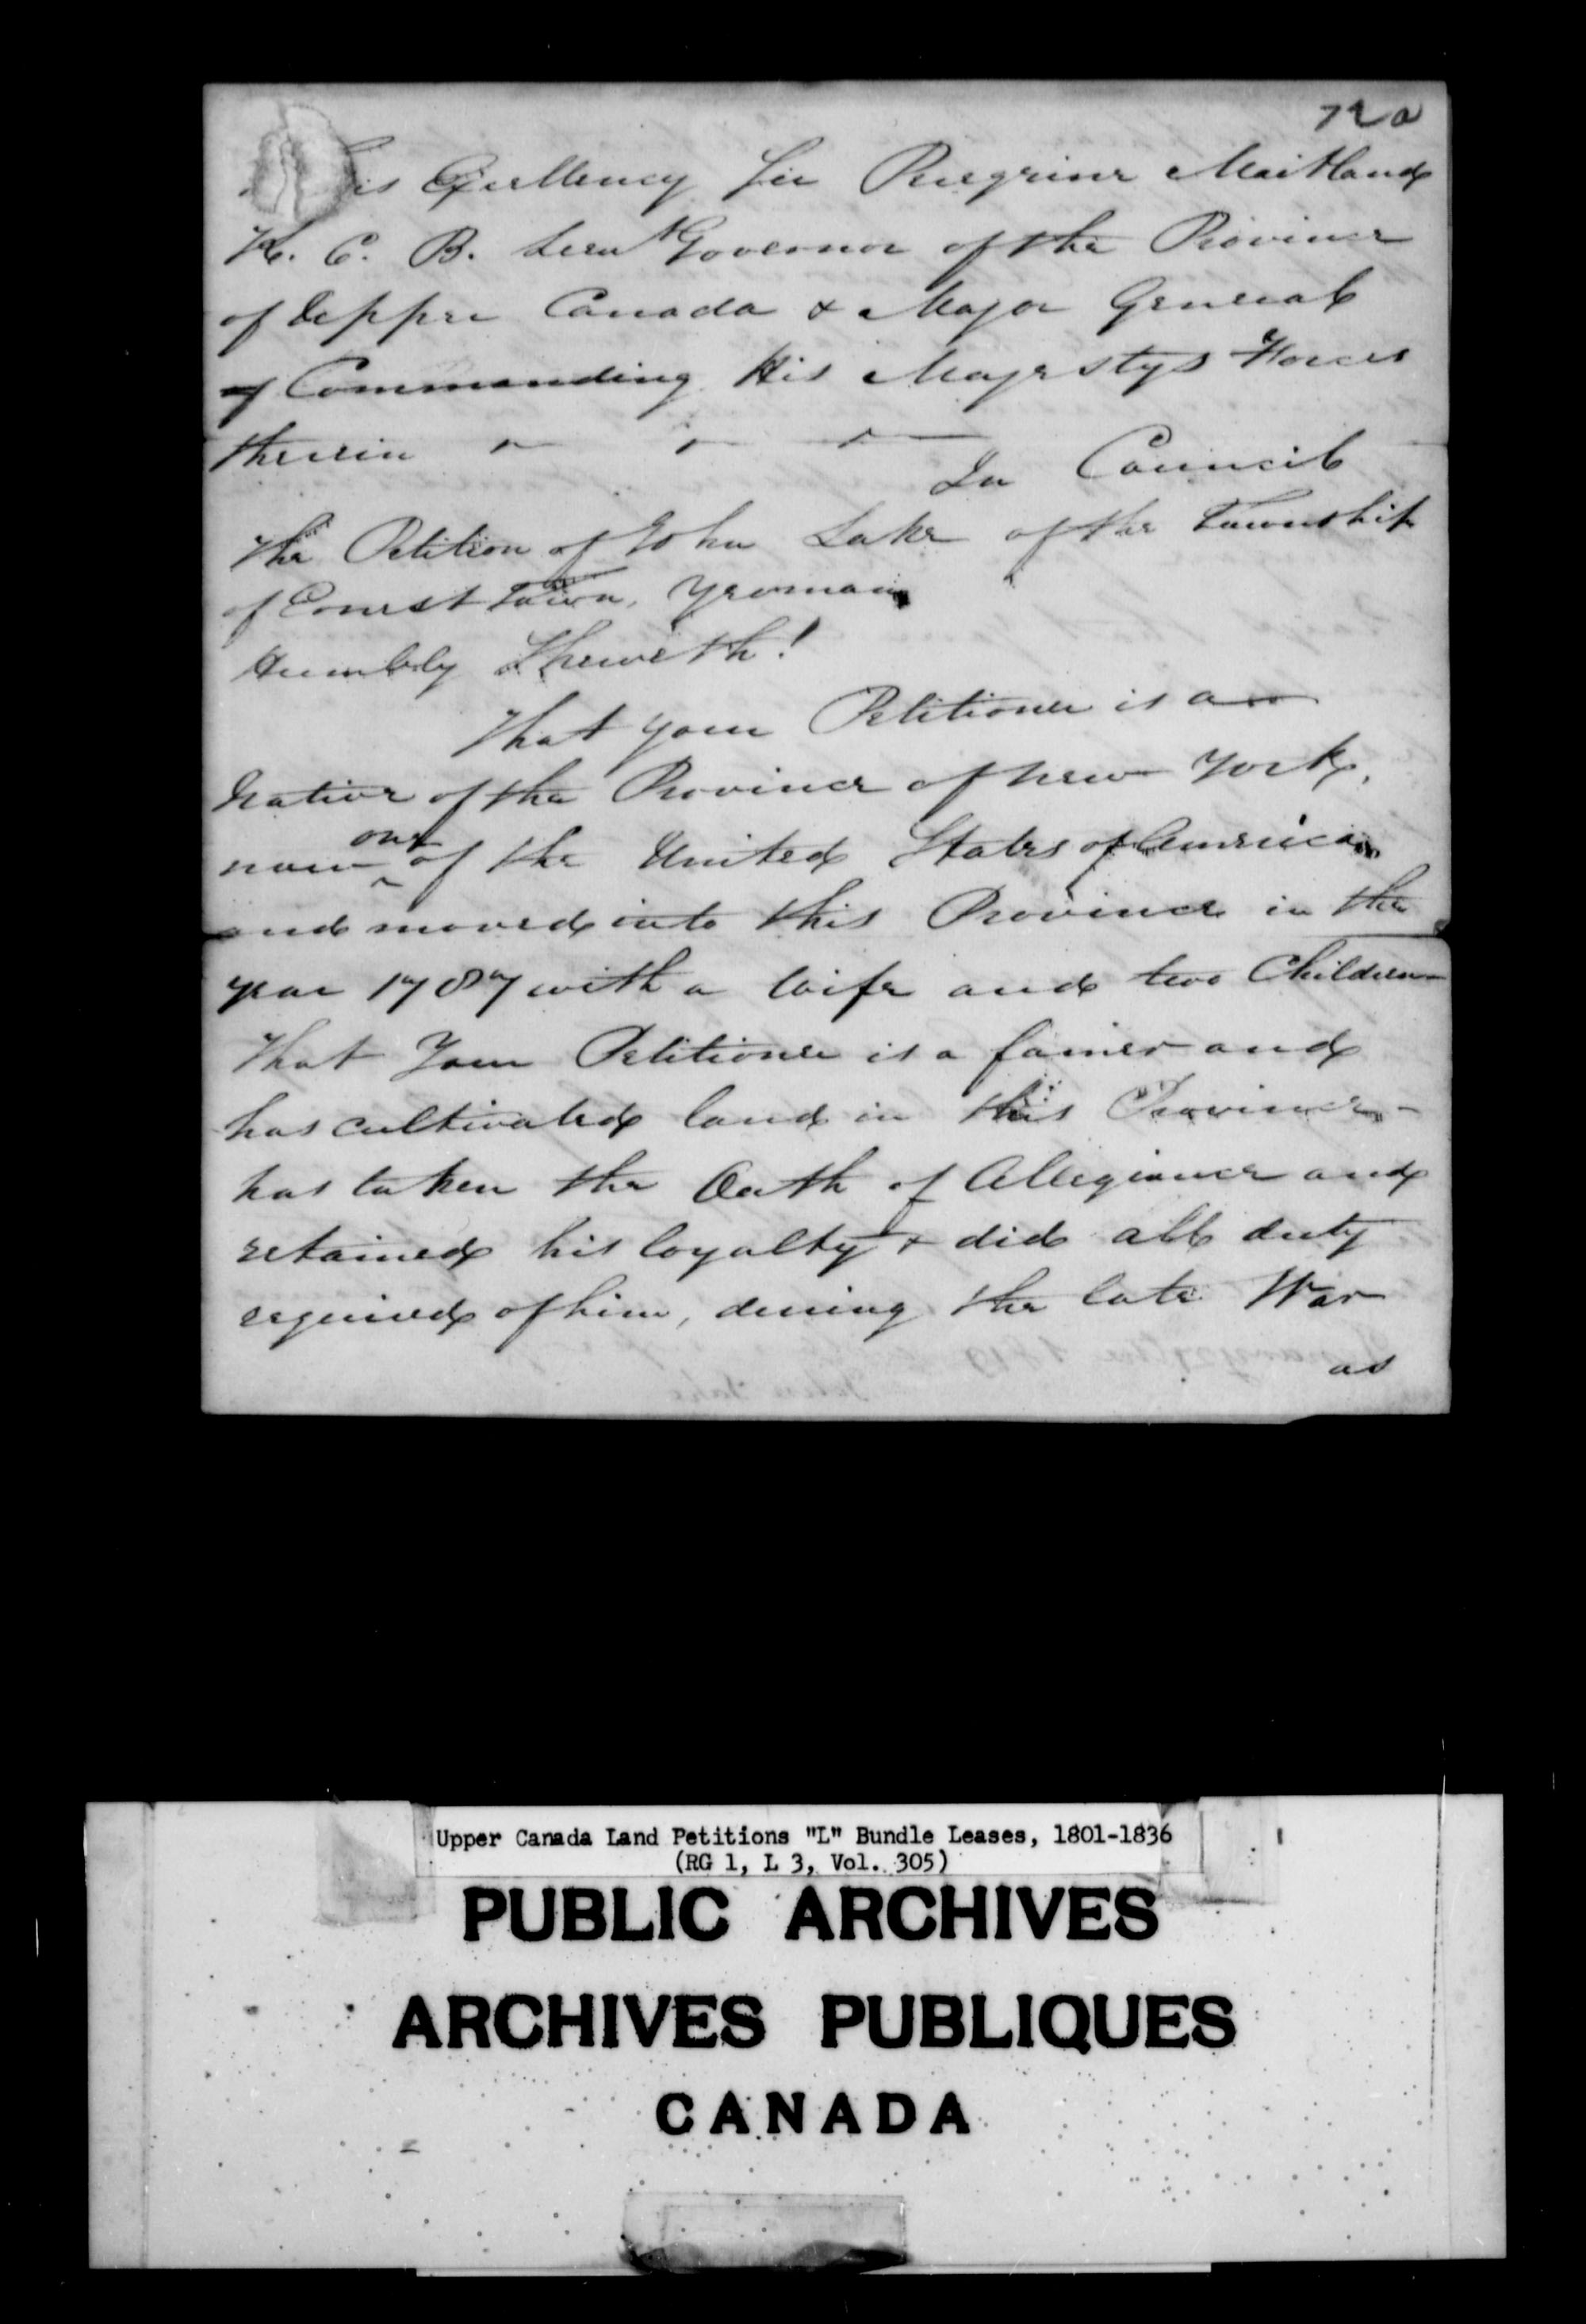 72a
His Excellency Sir Peregrine Maitland
K. C. B. Lieut Governor of the Province
of Upper Canada & Major General
of Commanding His Majestys Forces
therein
In Council
The Petition of John Lake of the Township
of Ernest Town, Yeoman
Humbly Sheweth!
That your Petitioner is a
Native of the Province of New York,
now one of the United States of America
and moved into this Province in the
year 1787 with a Wife and two Children
That Your Petitioner is a farmer and
has cultivated land in this Province -
has taken the Oath of Allegiance and
retained his loyalty & did all duty
required of him, during the late War
as
Upper Canada Land Petitions "L" Bundle Leases, 1801-1836
(RG 1, L 3, Vol. 305)
PUBLIC ARCHIVES
ARCHIVES PUBLIQUES
CANADA